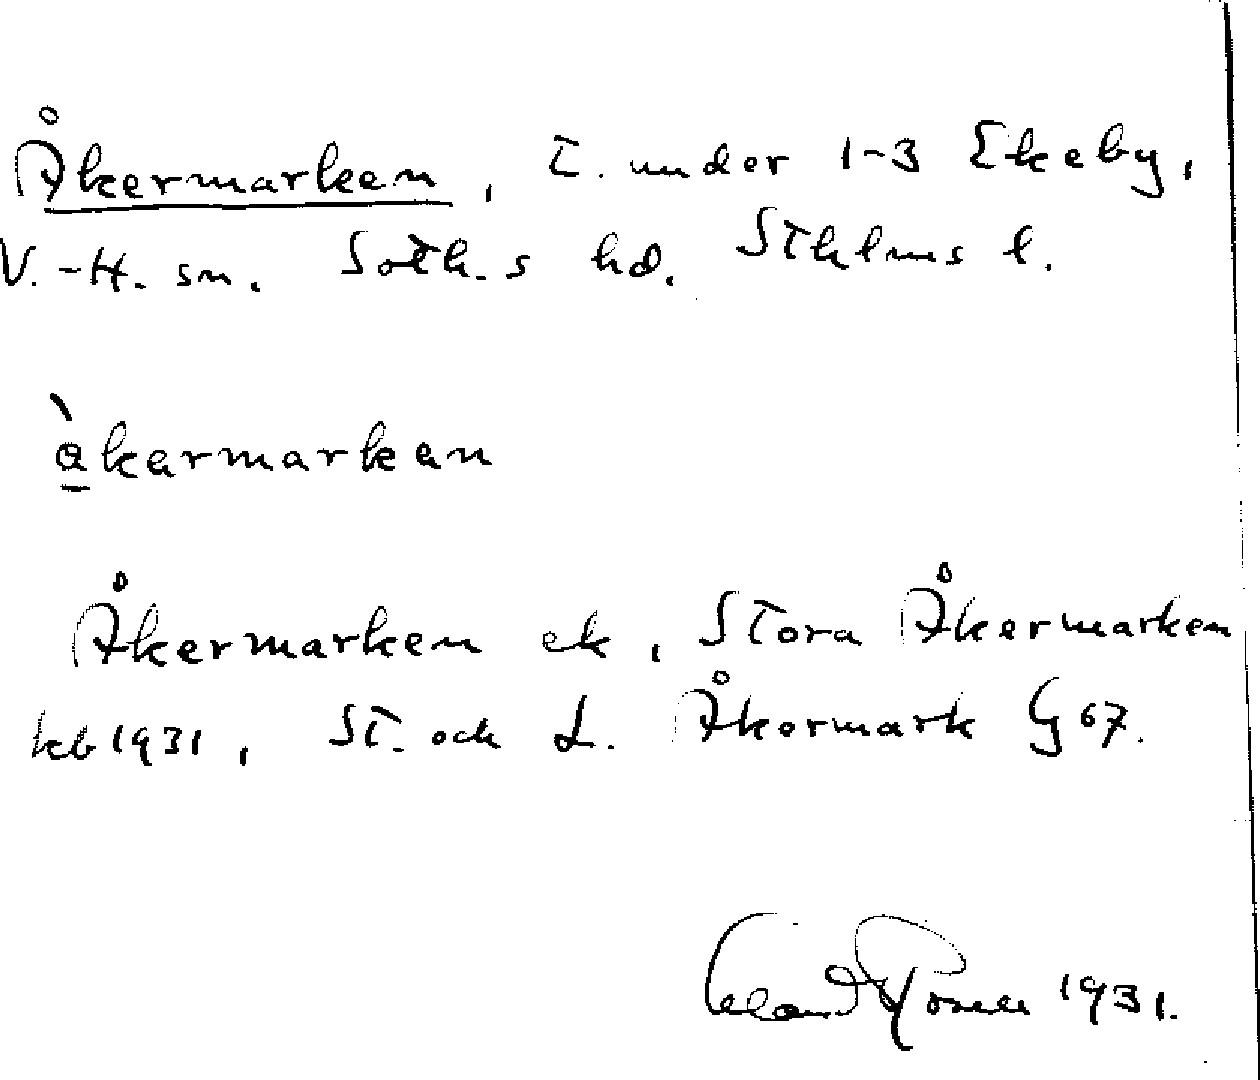 Åkermarken, t. under 1-3 Ekeby,
V.-H. sn. Soth.s hd. Sthlms l.
åkermarken
Åkermarken ek, Stora Åkermarken
kb 1931, St. och L. Åkermark G 67.
1931.